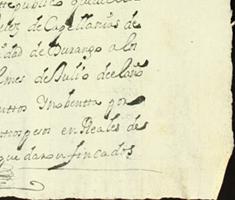 Juez de Capellanias de
dad de Durango a los
mes de Julio del año
entos Nobenta por
pesos en Reales de
que daron fincados